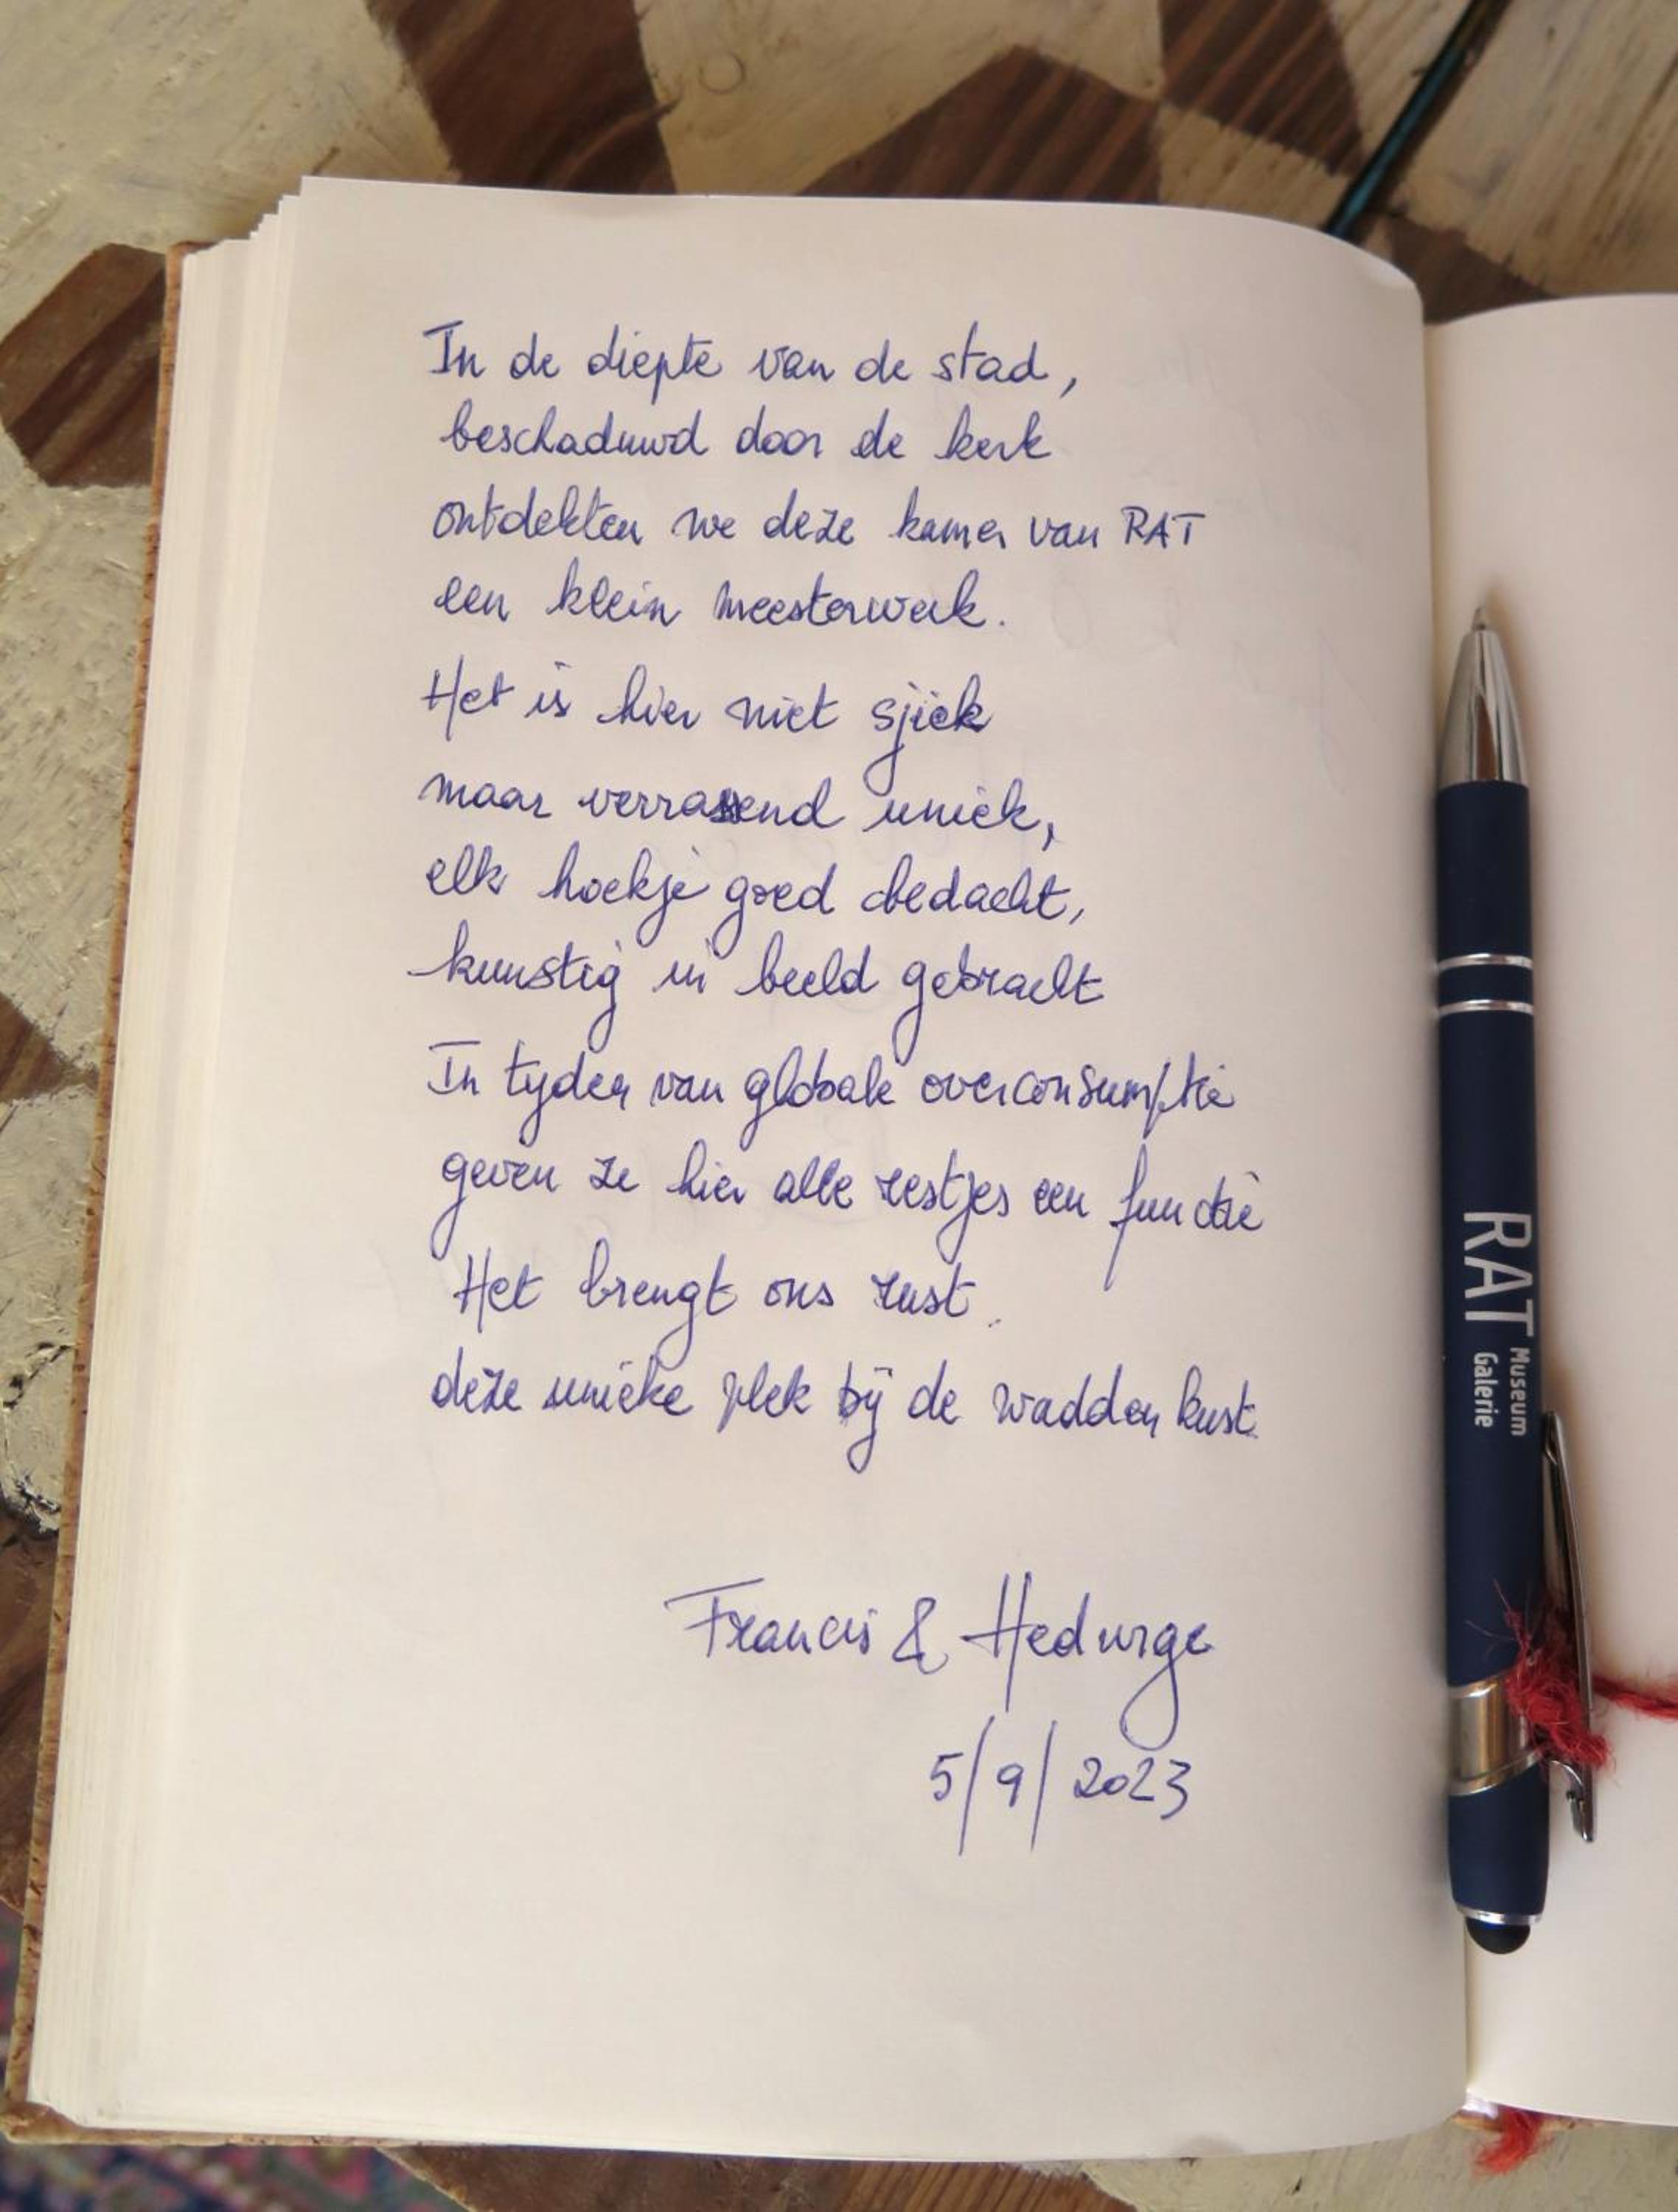 In de diepte van de stad,
beschaduwd door de kerk
ontdekten we deze kamer van RAT
een klein meesterwerk.
Het is hier niet sjiek
maar verrassend uniek,
elk hoekje goed bedacht,
kunstig in beeld gebracht
In tijden van globale overconsumptie
geven ze hier alle restjes een functie
Het brengt ons rust.
deze unieke plek bij de wadden kust
Francis & Hedwige
5/9/2023
RAT Museum
Galerie